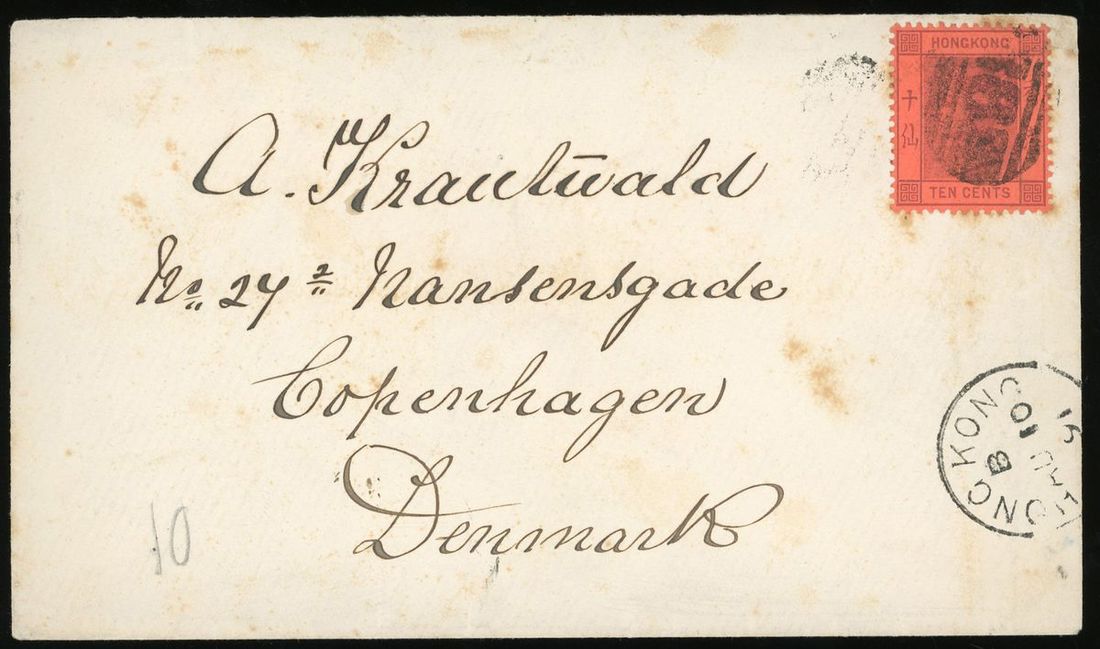 HONGKONG
十仙
TEN CENTS
A. Krautwald
No. 27 2 Nansensgade
Copenhagen
Denmark
HONG KONG
B
10
91
10